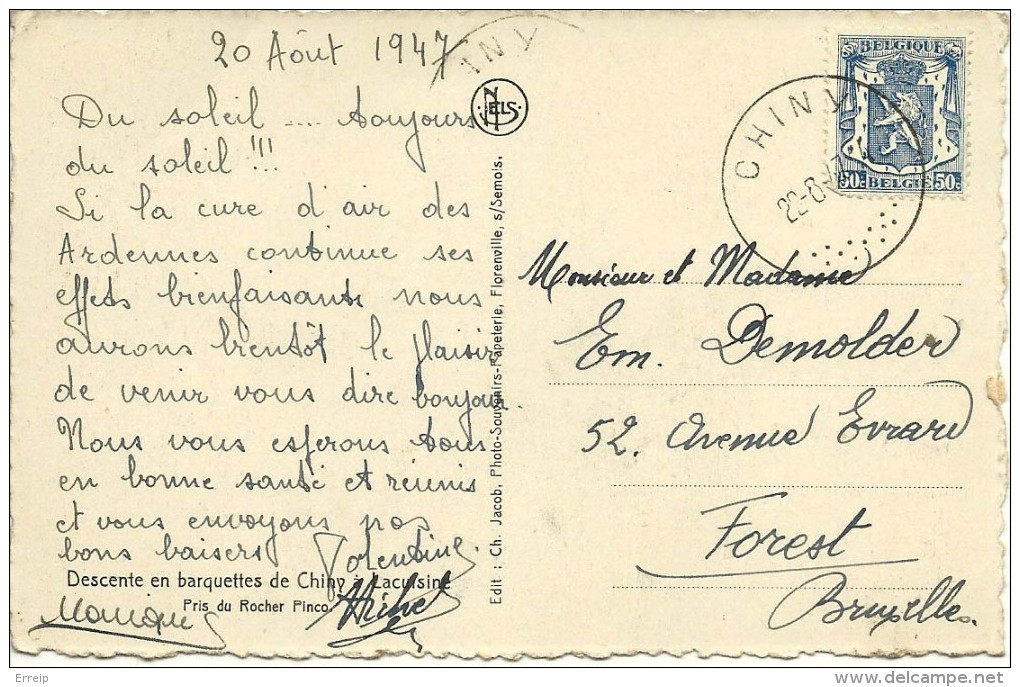 20 Août 1947
Du soleil .... toujours
du soleil !!!
Si la cure d'air des
Ardennes continue ses
effets bienfaisants nous
aurons bientôt le plaisir
de venir vous dire bonjour
Nous vous esperons tous
en bonne santé et réunis
et vous envoyons nos
bons baisers
Descente en barquettes de Chiny à Lacuisine
Pris du Rocher Pinco
Monique
INY
NELS
Edit : Ch. Jacob, Photo-Souvenirs-Papeterie, Florenville, s/Semois.
BELGIQUE
50c BELGIE 50c
CHINY
22-8-47
Monsieur et Madame
Em. Demolder
52. Avenue Evrard
Forest
Bruxelles.
Erreip
delcampe.net